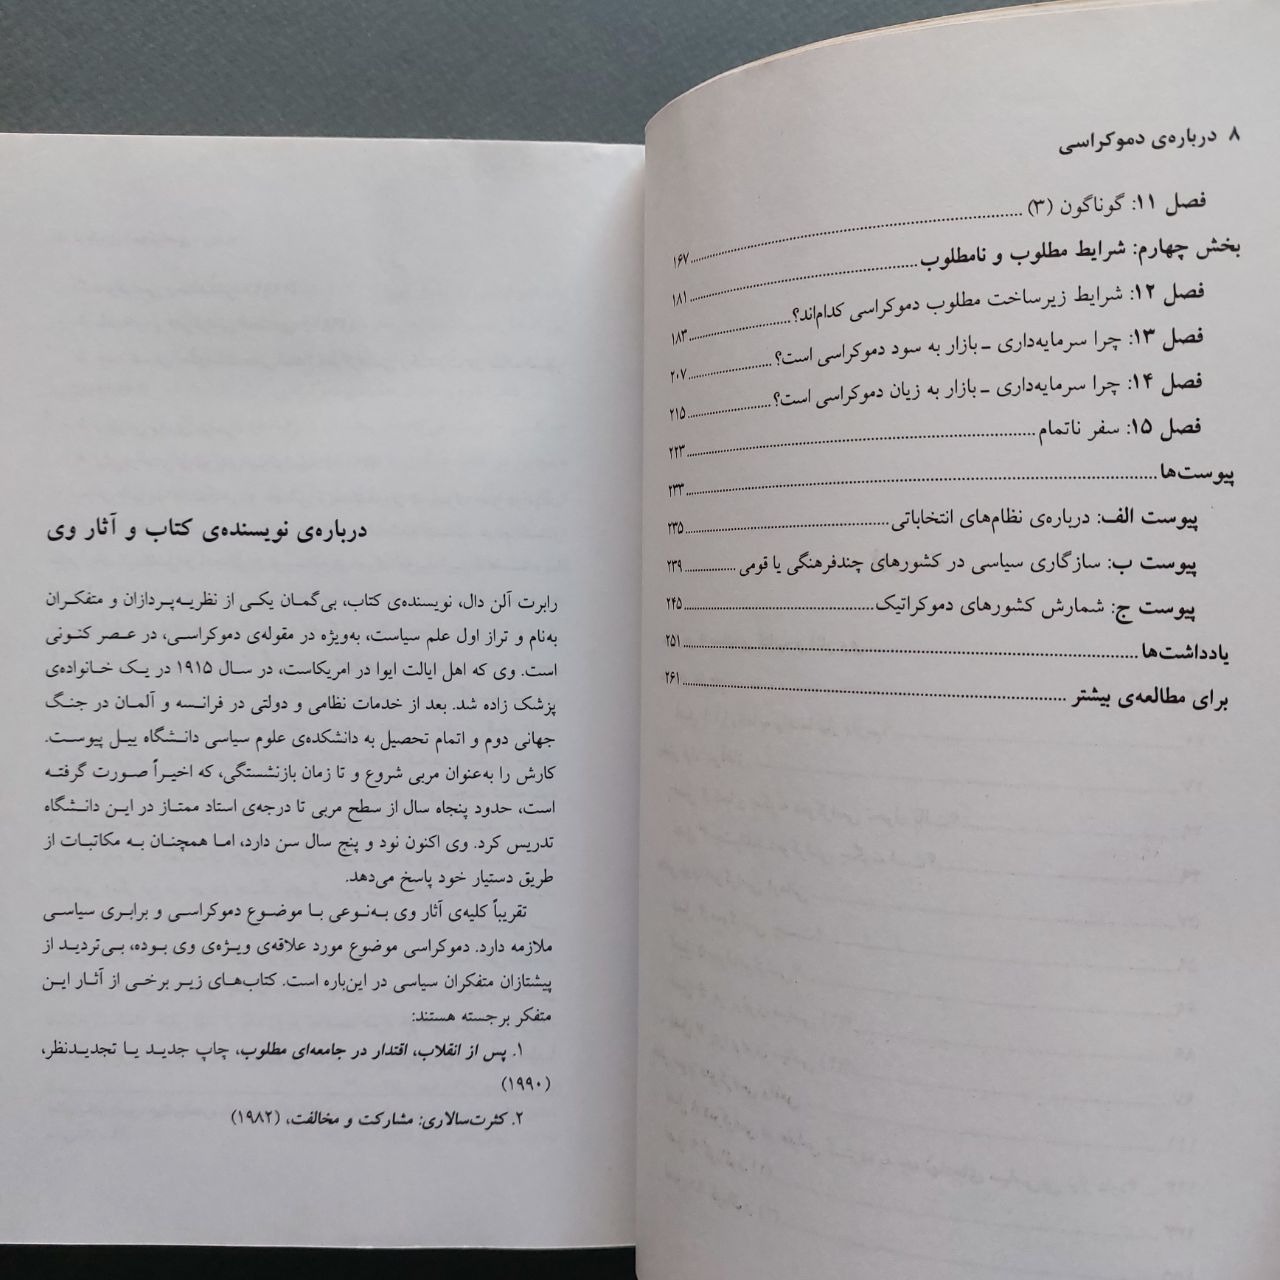 ۸ درباره‌ی دموکراسی
فصل ۱۱: گوناگون (۳) ........ ۱۶۷
بخش چهارم: شرایط مطلوب و نامطلوب ........ ۱۸۱
فصل ۱۲: شرایط زیرساخت مطلوب دموکراسی کدام‌اند؟ ........ ۱۸۳
فصل ۱۳: چرا سرمایه‌داری ـ بازار به سود دموکراسی است؟ ........ ۲۰۷
فصل ۱۴: چرا سرمایه‌داری ـ بازار به زیان دموکراسی است؟ ........ ۲۱۵
فصل ۱۵: سفر ناتمام ........ ۲۲۳
پیوست‌ها ........ ۲۳۳
پیوست الف: درباره‌ی نظام‌های انتخاباتی ........ ۲۳۵
پیوست ب: سازگاری سیاسی در کشورهای چندفرهنگی یا قومی ........ ۲۳۹
پیوست ج: شمارش کشورهای دموکراتیک ........ ۲۴۵
یادداشت‌ها ........ ۲۵۱
برای مطالعه‌ی بیشتر ........ ۲۶۱
درباره‌ی نویسنده‌ی کتاب و آثار وی
رابرت آلن دال، نویسنده‌ی کتاب، بی‌گمان یکی از نظریه‌پردازان و متفکران
به‌نام و تراز اول علم سیاست، به‌ویژه در مقوله‌ی دموکراسی، در عصر کنونی
است. وی که اهل ایالت ایوا در امریکاست، در سال ۱۹۱۵ در یک خانواده‌ی
پزشک زاده شد. بعد از خدمات نظامی و دولتی در فرانسه و آلمان در جنگ
جهانی دوم و اتمام تحصیل به دانشکده‌ی علوم سیاسی دانشگاه ییل پیوست.
کارش را به‌عنوان مربی شروع و تا زمان بازنشستگی، که اخیراً صورت گرفته
است، حدود پنجاه سال از سطح مربی تا درجه‌ی استاد ممتاز در این دانشگاه
تدریس کرد. وی اکنون نود و پنج سال سن دارد، اما همچنان به مکاتبات از
طریق دستیار خود پاسخ می‌دهد.
تقریباً کلیه‌ی آثار وی به‌نوعی با موضوع دموکراسی و برابری سیاسی
ملازمه دارد. دموکراسی موضوع مورد علاقه‌ی ویژه‌ی وی بوده، بی‌تردید از
پیشتازان متفکران سیاسی در این‌باره است. کتاب‌های زیر برخی از آثار این
متفکر برجسته هستند:
۱. پس از انقلاب، اقتدار در جامعه‌ای مطلوب، چاپ جدید با تجدیدنظر،
(۱۹۹۰)
۲. کثرت‌سالاری: مشارکت و مخالفت، (۱۹۸۲)